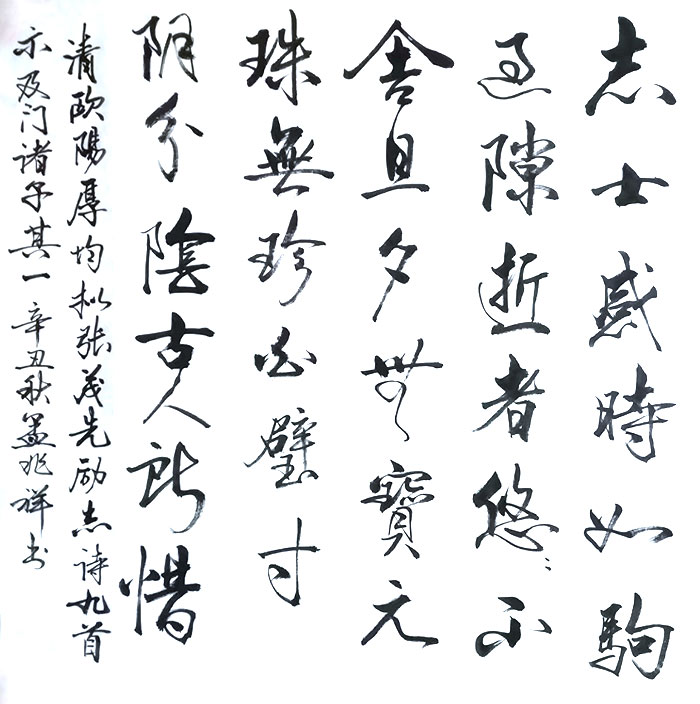 志士感時如駒
過隙逝者悠〻不
舍旦夕無寶元
珠無珍白璧寸
阴分陰古人所惜
清欧陽厚均拟张茂先励志诗九首
示及门诸子其一辛丑秋孟兆祥书